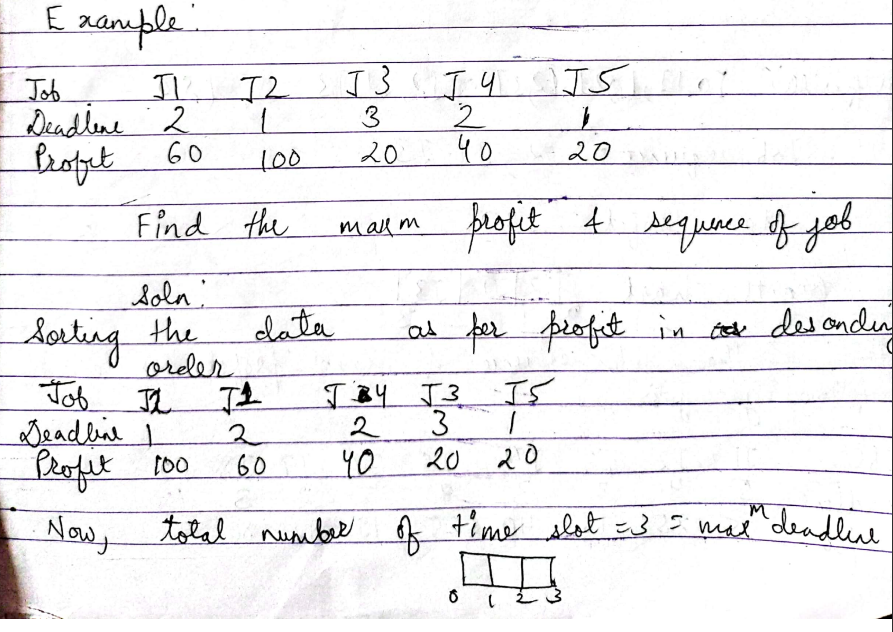 Example:
Job J1 J2 J3 J4 J5
Deadline 2 1 3 2 1
Profit 60 100 20 40 20
Find the maxm profit & sequence of job
Soln:
Sorting the data as per profit in desanding
order
Job J2 J1 J4 J3 J5
Deadline 1 2 2 3 1
Profit 100 60 40 20 20
Now, total number of time slot = 3 = maxᵐ deadline
0 1 2 3